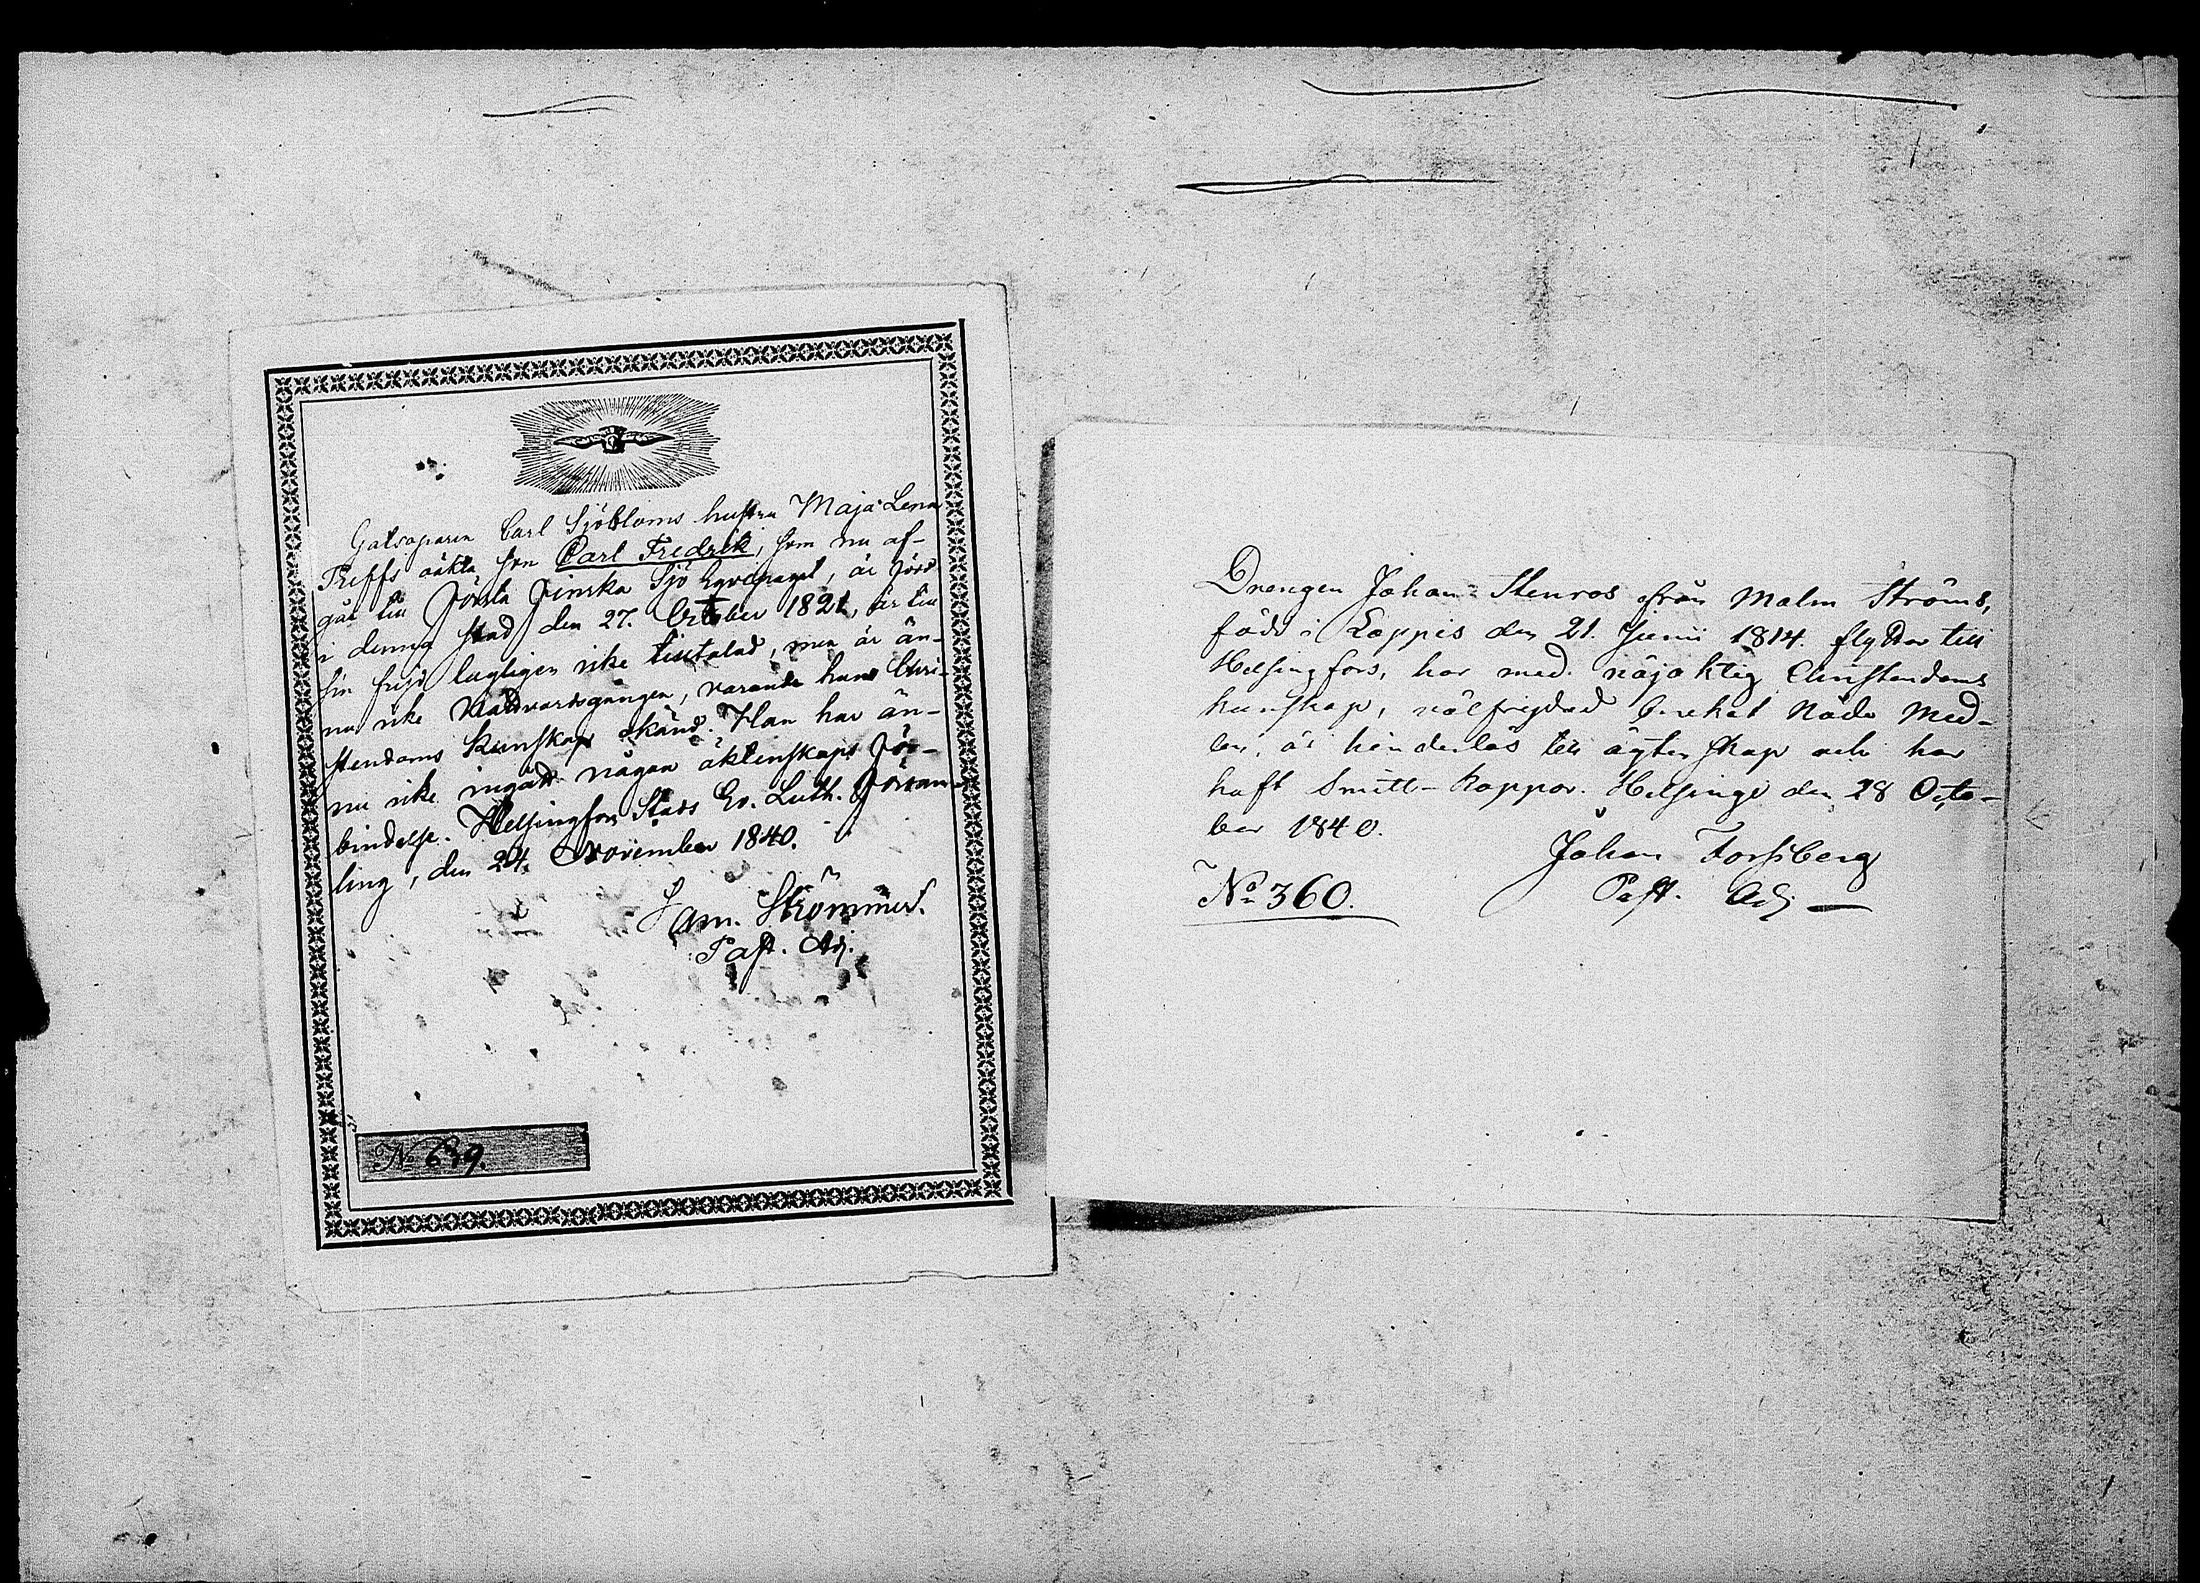 Gatsoparen Carl Sjöbloms hustru Maja Lena
Treffs oäkta son Carl Fredrik, som nu af-
går till Första Finska Sjö Equipaget, är född
i denna stad den 27. October 1821, är till
sin frejd lagligen icke tilltalad, men är än-
nu icke Nattvardsgången, varande hans Chri-
stendoms kunskap okänd. Han har än-
nu icke ingått någon äktenskaps för-
bindelse. Helsingfors Stads Ev. Luth. Församl-
ling, den 24. November 1840.
Sam. Strömmer.
Past. Adj.
No 639.
Drengen Johan Stenros från Malm Ströms,
född i Loppis den 21. Junii 1814. flyttar till
Helsingfors, har med nöjaktig Christendoms
kunskap, välfrejdad brukat Nåde Med-
len, är hinderlös till ägtenskap och har
haft Smitt-koppor. Helsinge den 28 Octo-
ber 1840.
Johan Forssberg
Past. Adj
No 360.